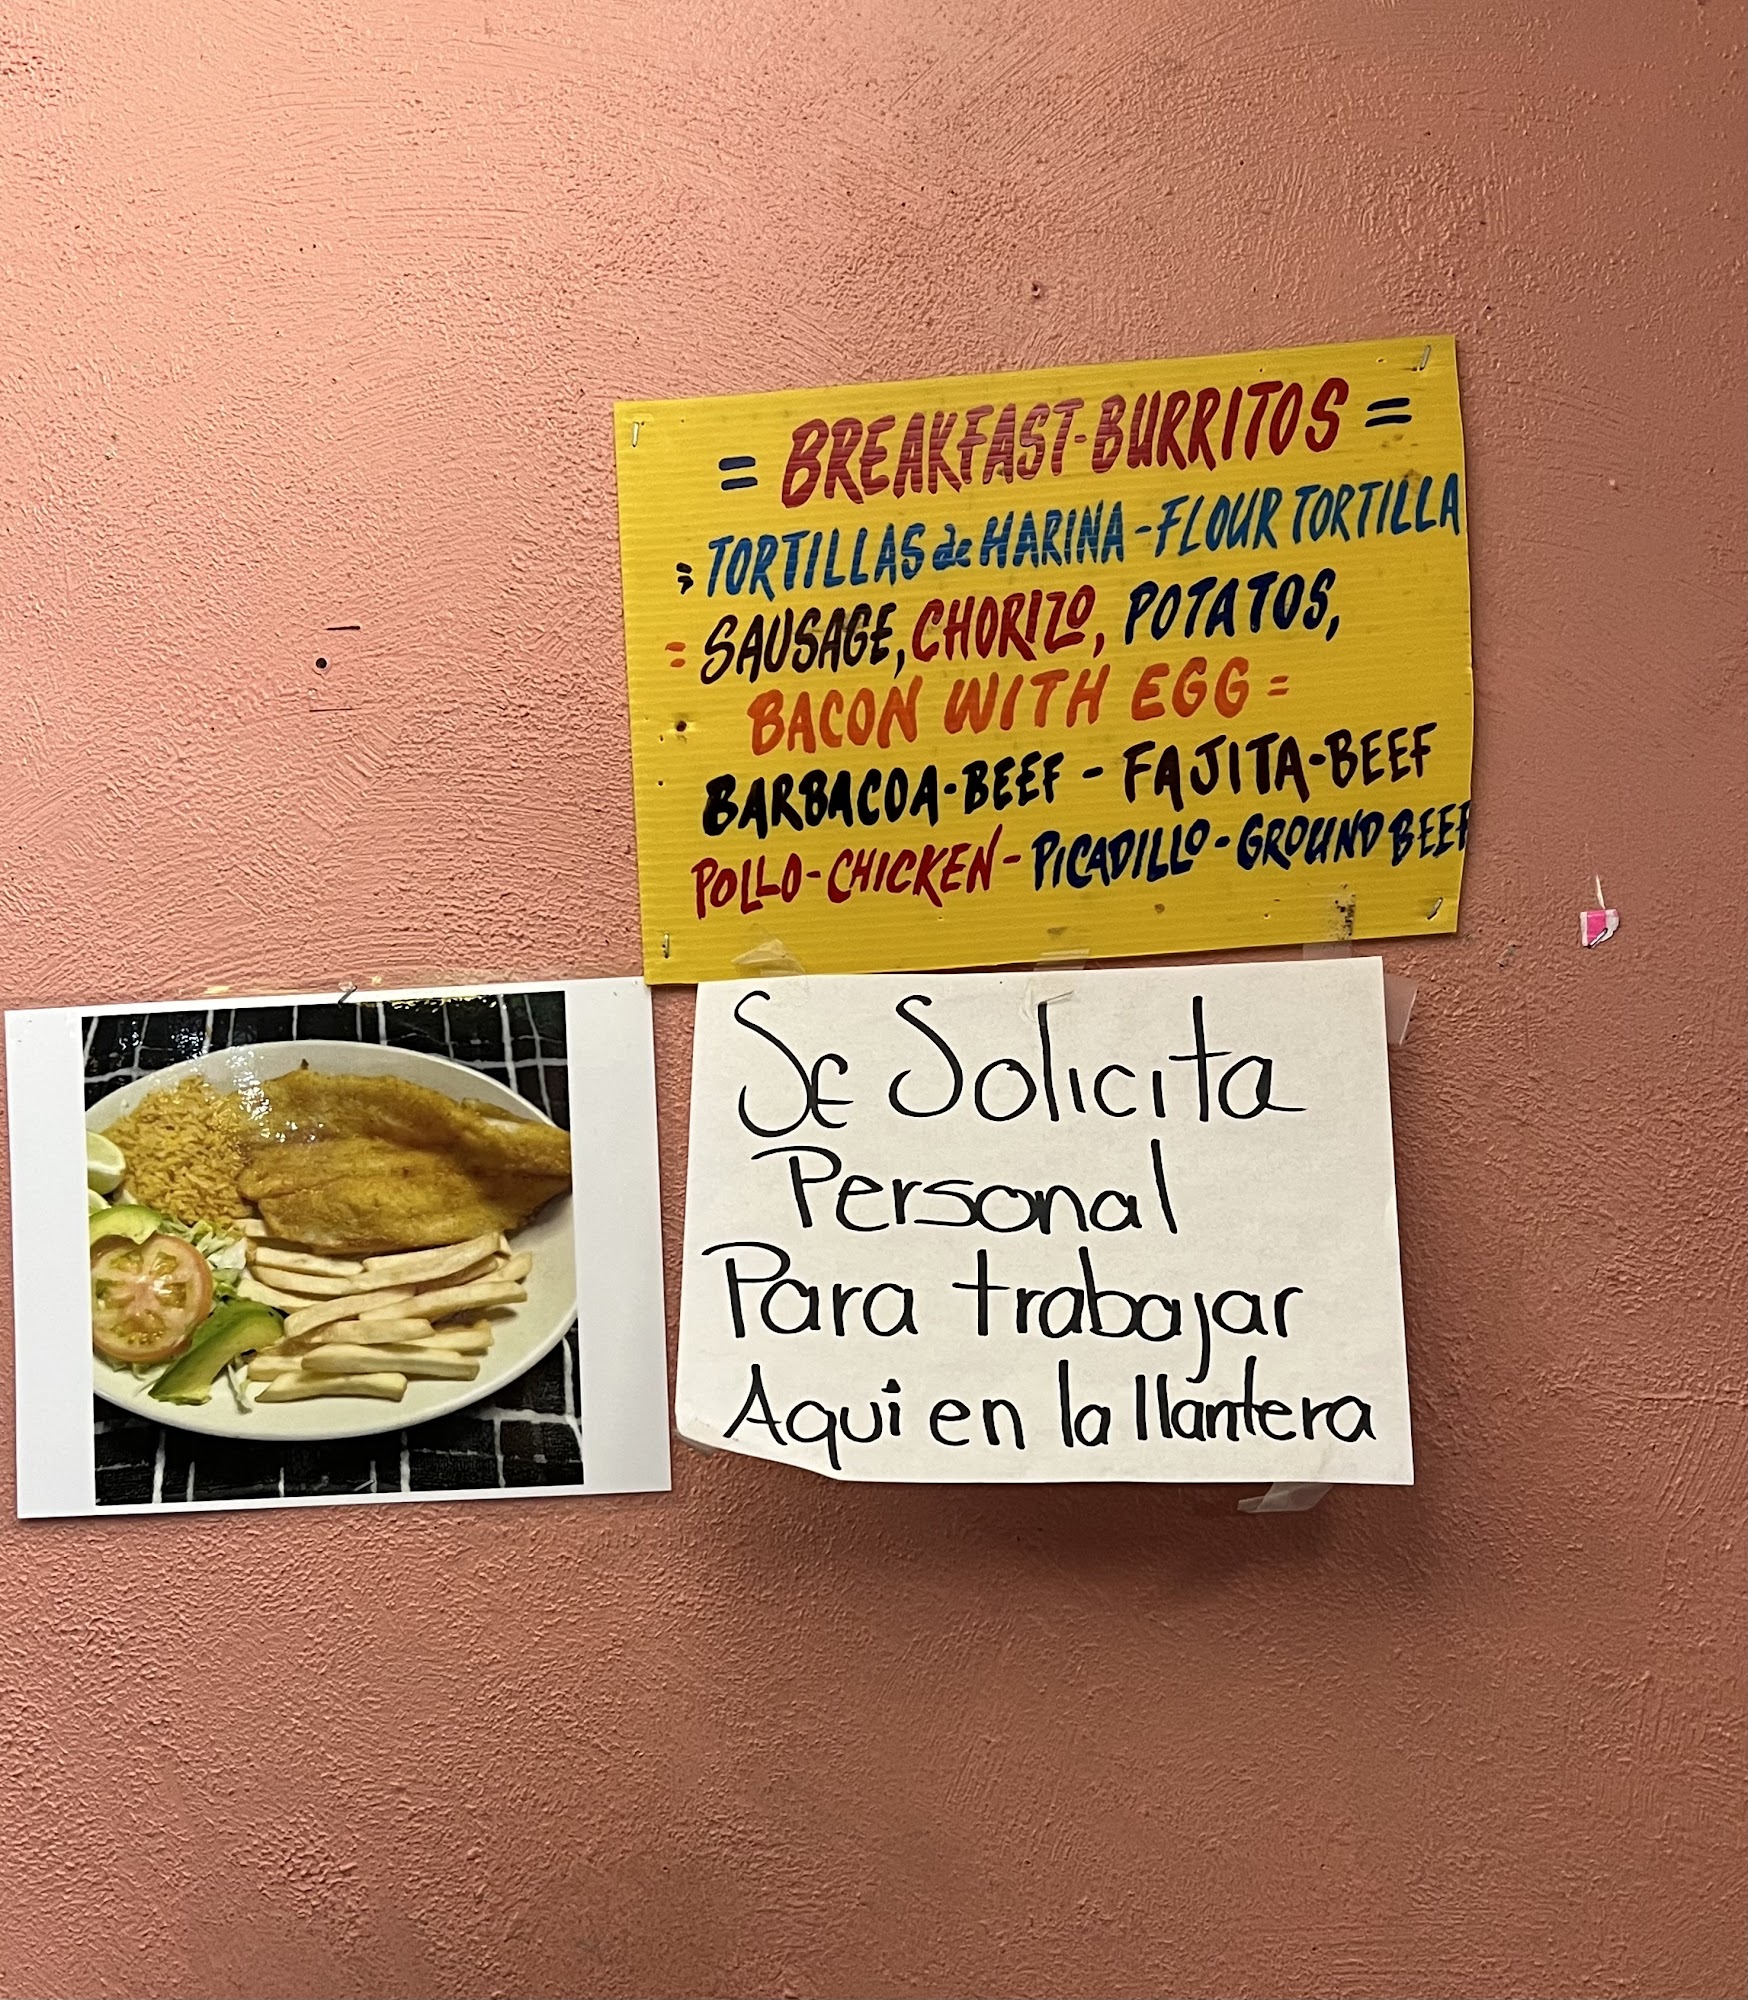 = BREAKFAST-BURRITOS =
= TORTILLAS de HARINA - FLOUR TORTILLA
= SAUSAGE, CHORIZO, POTATOS,
BACON WITH EGG =
BARBACOA-BEEF - FAJITA-BEEF
POLLO-CHICKEN - PICADILLO-GROUND BEEF
Se Solicita
Personal
Para trabajar
Aqui en la llantera